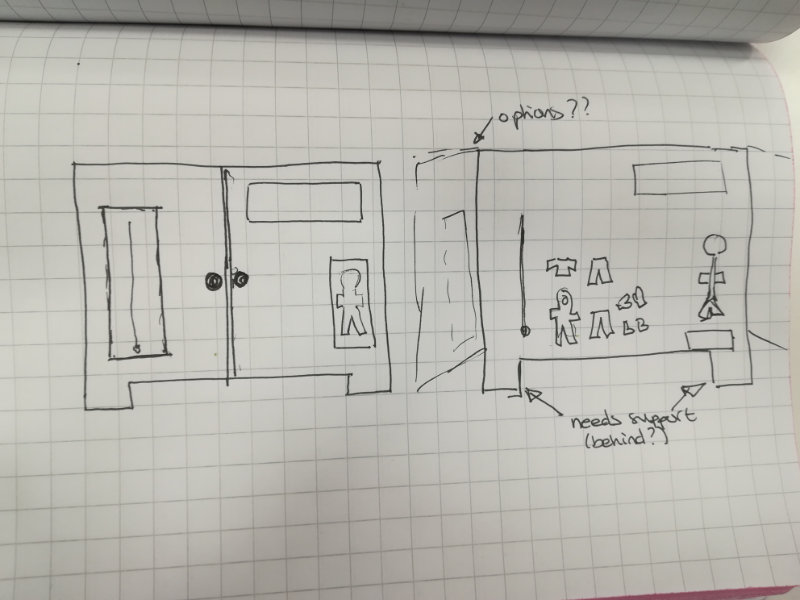 options??
needs support
(behind?)